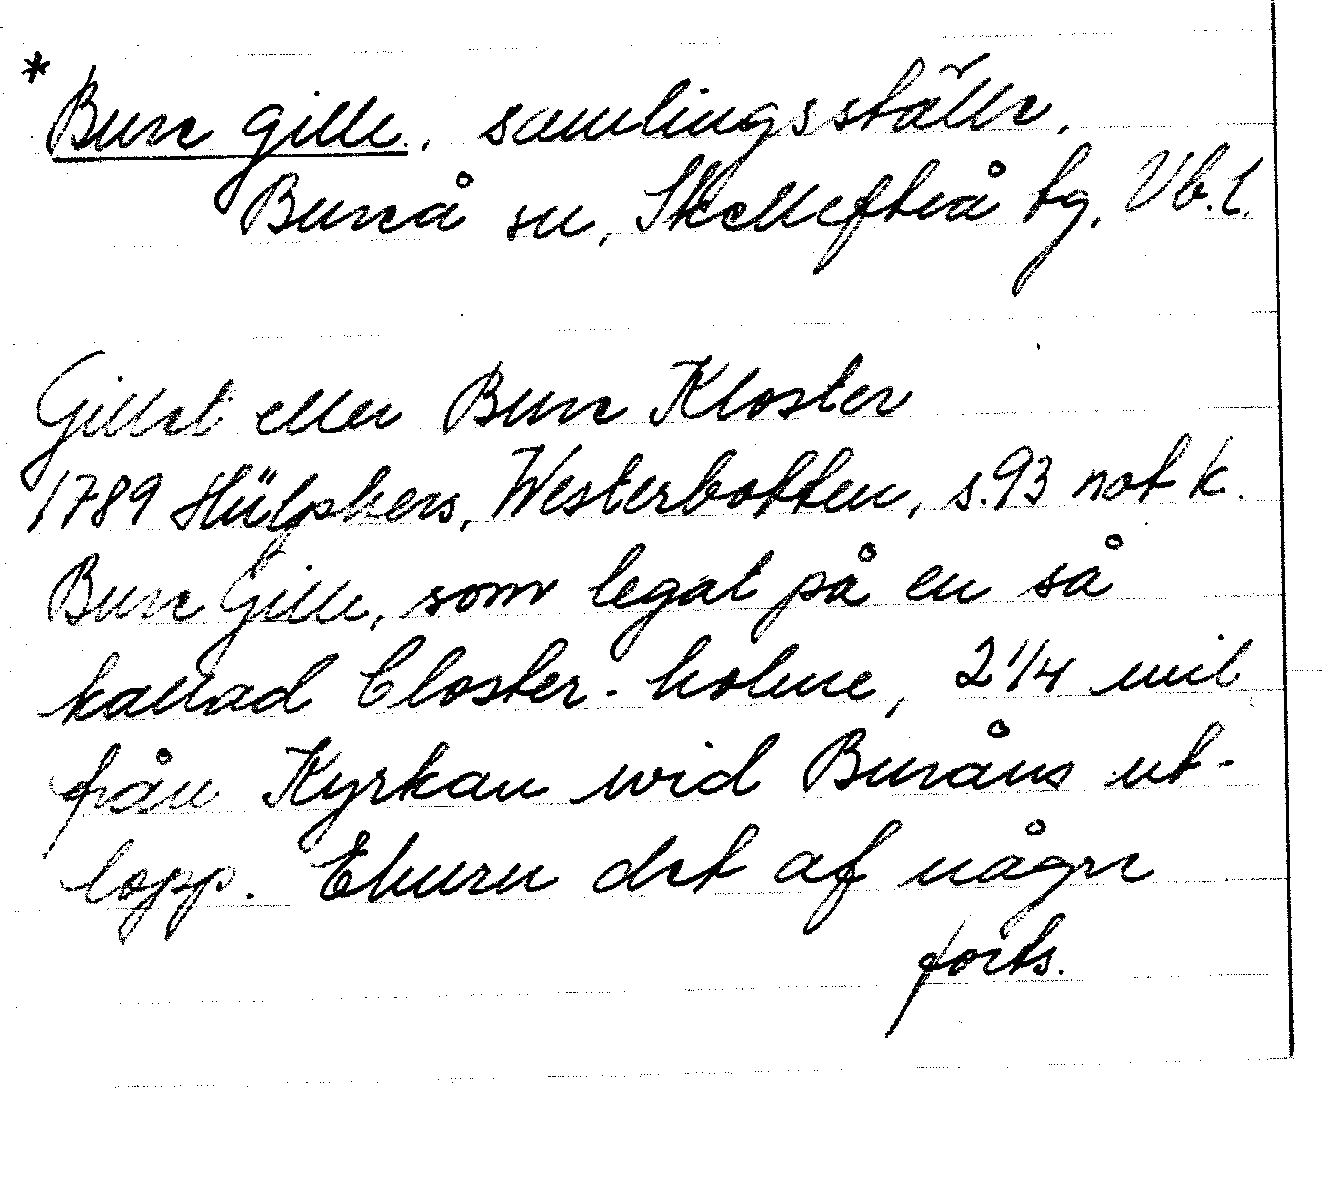 * Bure gille, samlingsställe,
Bureå sn, Skellefteå tg, Vb. l.
Gillet eller Bure Kloster
1789 Hülphers, Westerbotten, s. 93 not k.
Bure Gille, som legat på en så
kallad Closter-holme, 2 1/4 mil
från Kyrkan wid Buråns ut-
lopp. Ehuru det af någre
forts.